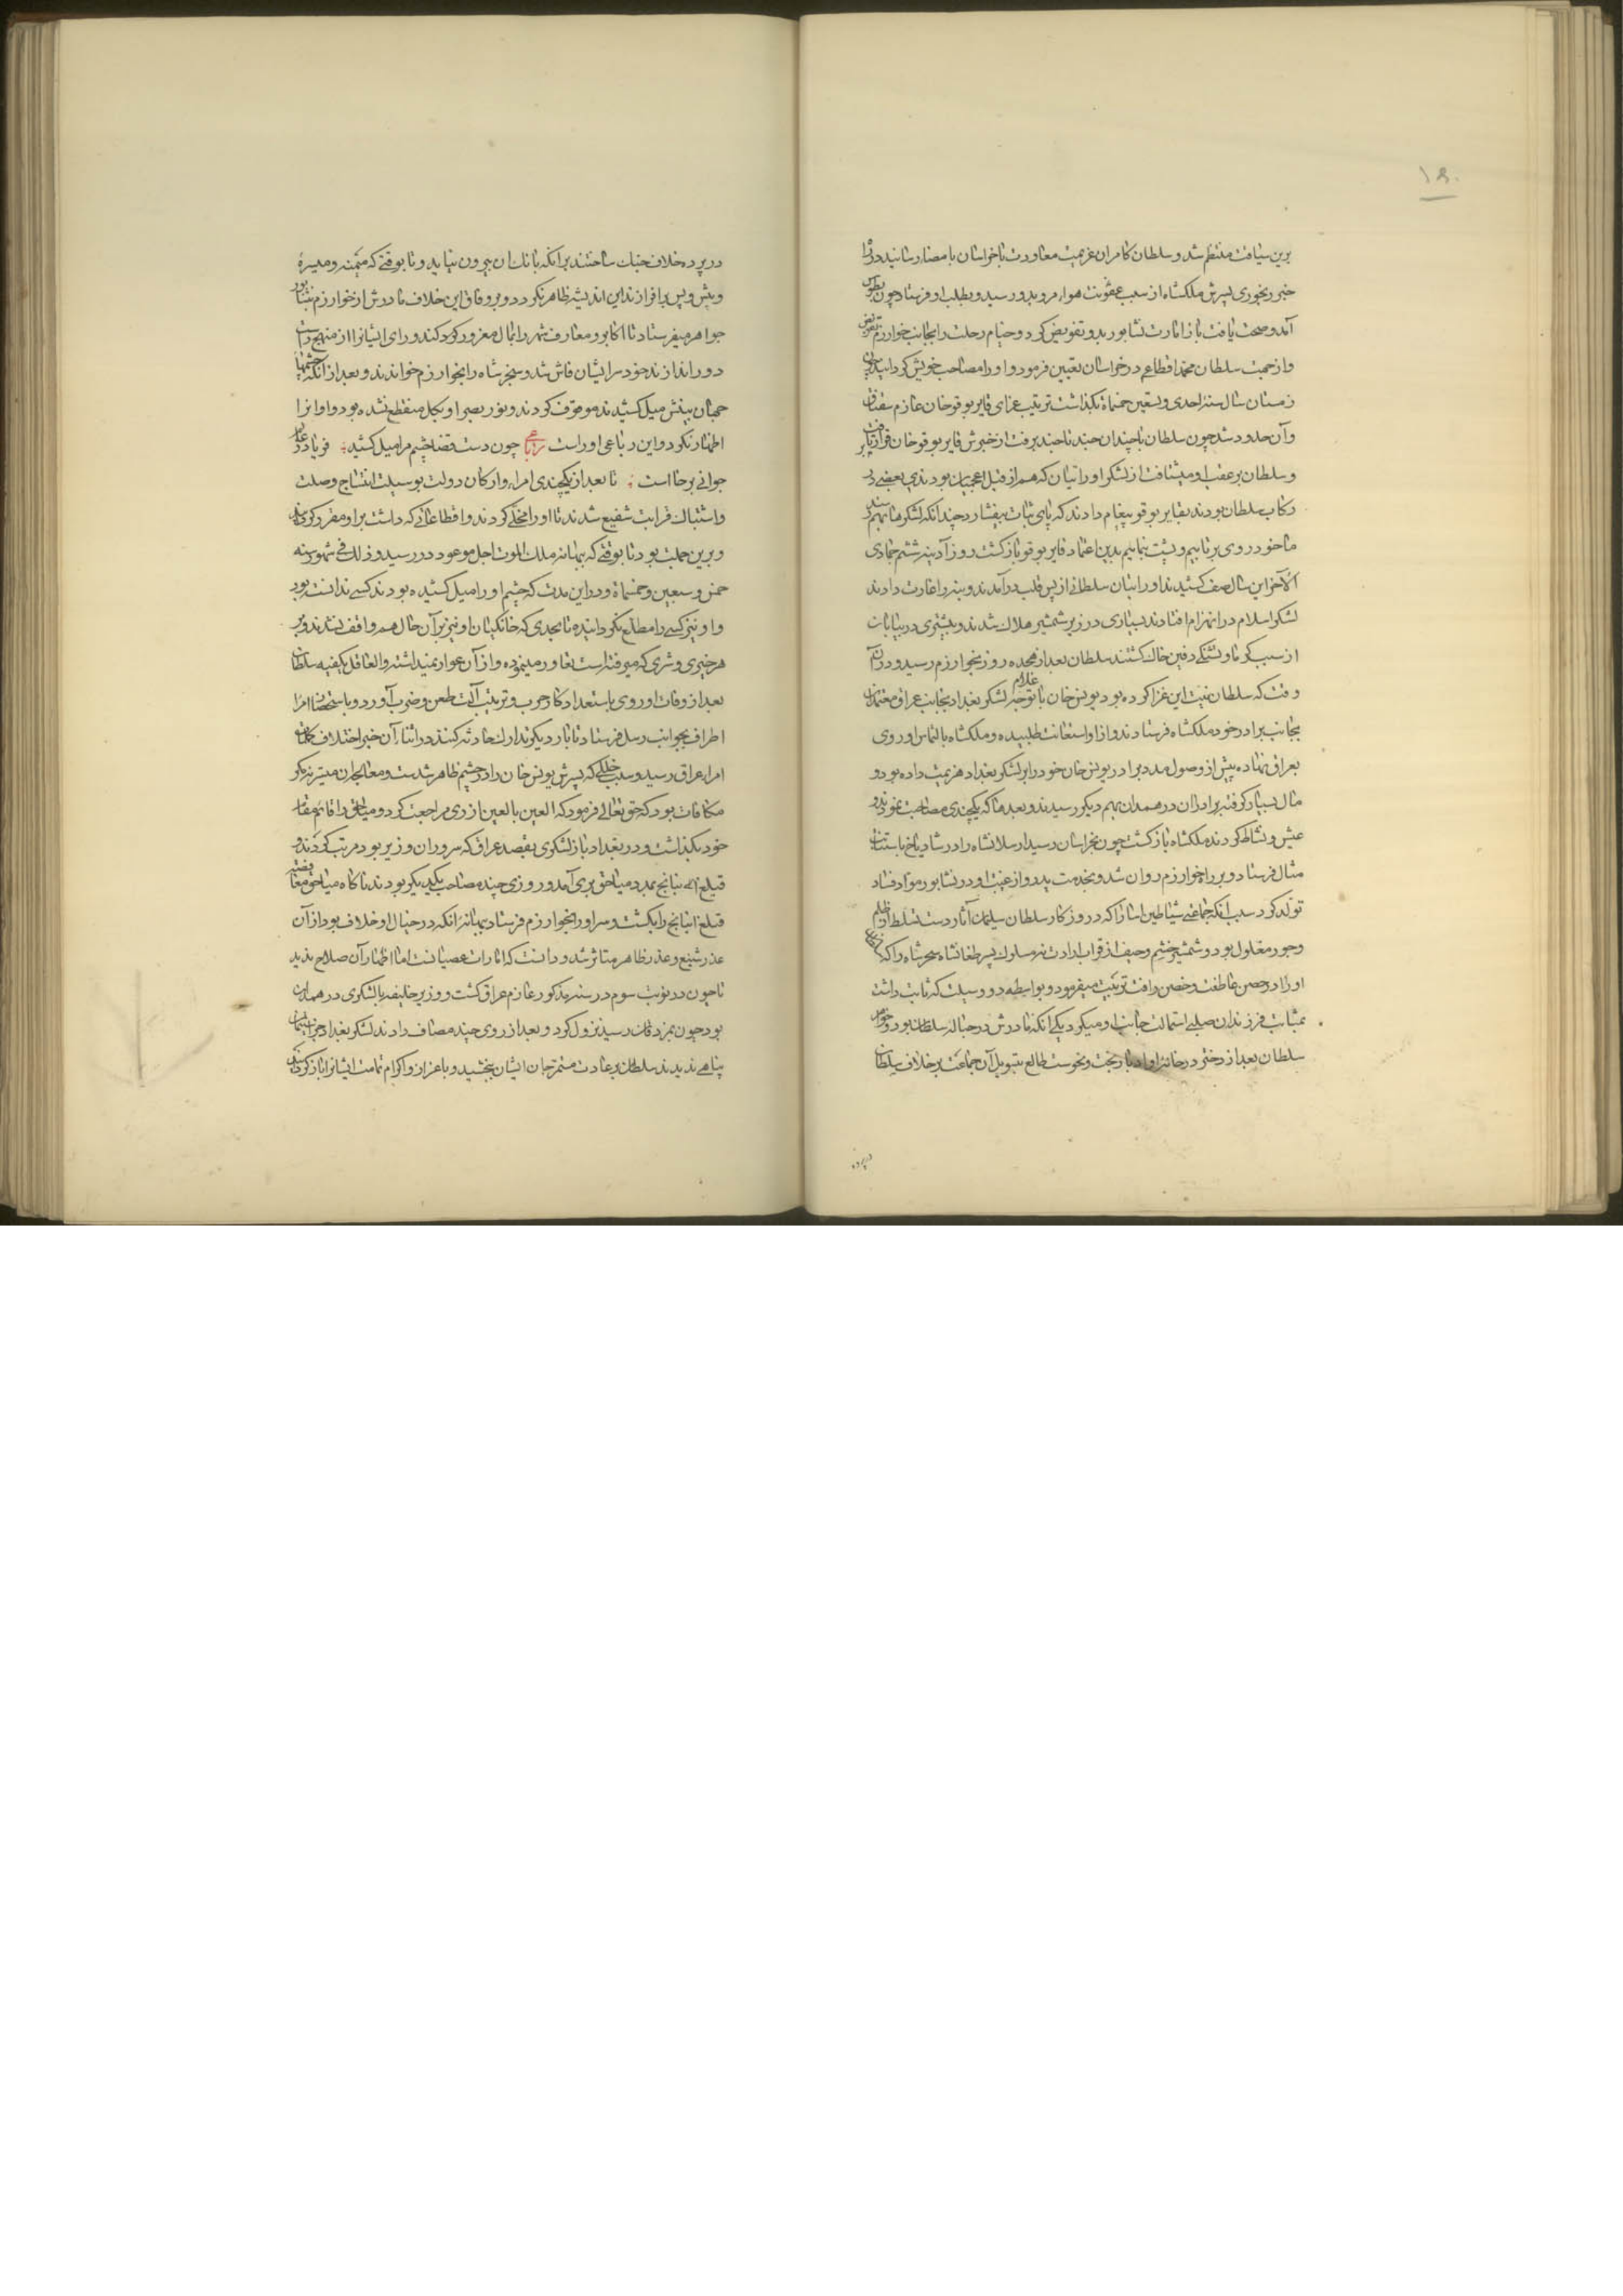 ۱۹۰
برین سیاقت منتظم شد و سلطان کامران عزیمت معاودت با خراسان بامضا رسانید در راه
خبر رنجوری پسرش ملکشاه از سبب عفونت هواء مرو بدو رسید و بطلب او فرستاد چون بطوس
آمد و صحت یافت باز امارت نشابور بدو تفویض کرد و خیام رحلت را بجانب خوارزم
و از جهت سلطان محمد اقطاعی در خراسان تعیین فرمود و او را مصاحب خویش گردانید
زمستان سال سنه احدی و تسعین خمسمأة بگذاشت ترتیب غزای قایر بوقو خان عازم سقناق
و آن حدود شد چون سلطان با چندان جند تا جند برفت از خبرش قایر بوقو خان
و سلطان بر عقب او میشتافت از لشکر اورانیان که هم از قبل اعجمیان بودندی بعضی در
رکاب سلطان بودند بقایر بوقو پیغام دادند که پای ثبات بیفشارد چندانکه لشکرها بهم رسند
ما خود روی برتابیم و پشت بنماییم بدین اعتماد قایر بوقو بازگشت روز آدینه ششم جمادی
الآخر این سال صف کشیدند اورانیان سلطانی از پس قلب درآمدند و بنه را غارت دادند
لشکر اسلام در انهزام افتادند بسیاری در زیر شمشیر هلاک شدند و بیشتری در بیابان
از سبب گرما و تشنگی دفین خاک گشتند سلطان بعد از هجده روز بخوارزم رسید و در آن
وقت که سلطان نیت این غزا کرده بود یونس خان باعلام توجه لشکر بغداد بجانب عراق معتمدان
بجانب برادر خود ملکشاه فرستادند و از او استعانت طلبیده و ملکشاه بالتماس او روی
بعراق نهاده پیش از وصول مدد برادر یونس خان خود را بر لشکر بغداد هزیمت داده بود و
مال بسیار گرفته برادران در همدان بهم دیگر رسیدند و بعد ما که یکچندی مصاحبت نمودند و
عیش و نشاط کردند ملکشاه بازگشت چون بخراسان رسید ارسلانشاه را در شادیاخ باستنابت
مثال فرستاد و بر راه خوارزم روان شد و بخدمت پدر و از غیبت او در نشابور مواد فساد
تولد کرد سبب آنکه جماعتی شیاطین انسانرا که در روزگار سلطان سلیمان آثار دست تسلط از ظلم
و جور مغلول بود و شمشیر خشم و حیف از قراب ارادت نه مسلول پسر طغانشاه سنجر شاه را که
او را در حصن عاطفت و حضن رافت تربیت میفرمود و بواسطه دو وسیلت که ثابت داشت
بمثابت فرزندان صلبی استمالت جانب او میکرد یکی آنکه مادرش در حباله سلطان بود و
سلطان بعد از دختر در خانه او ادبار بخت و نحوست طالع بتسویل آن جماعت بر خلاف سلطان
در پرده
در پرده خلاف جنگ ساختند بر آنکه بانک آن بیرون نیاید و تا بوقتی که میمنه و میسره
و پیش و پس برافرازند این اندیشه ظاهر نگردد و بر وفاق این خلاف مادرش از خوارزم بنشابور
جواهر میفرستاد تا اکابر و معارف شهر را بمال مغرور کرد کنند و رای ایشانرا از منهج راست
دور اندازند خود سر ایشان فاش شد و سنجر شاه را بخوارزم خواندند و بعد از آنکه چشمهاء
جهان بینش میل کشیدند موقوف کردند و نور بصر او بکل منقطع نشده بود و او آنرا
اظهار نکرد و این رباعی او راست رباعی چون دست قضا چشم مرا میل کشید فریاد ز عالم
جوانی برخاست تا بعد از یکچندی امراء و ارکان دولت بوسیلت انتساج وصلت
و اشتباک قرابت شفیع شدند تا او را مخلی کردند و اقطاعاتی که داشت بر او مقرر کردند
و برین جملت بود تا بوقتی که بهانه ملک الموت اجل موعود در رسید و ذلک فی شهور سنه
خمس و سبعین و خمسمأة و در این مدت که چشم او را میل کشیده بودند کسی ندانست بود
و او نیز کسی را مطلع نگردانیده تا بحدی که خانگیان او نیز بر آن حال هم واقف نشدند و بر
هر خیری و شری که میرفته است تغاور مینموده و از آن عوار میداشته والعاقل یکفیه سلطان
بعد از وفات او روی باستعداد کار حرب و ترتیب آلت طعن و ضرب آورد و باستحضار امرا
اطراف بجوانب رسل فرستاد تا بار دیگر تدارک حادثه کنند در اثناء آن خبر اختلاف
امراء عراق رسید و سبب خللی که پسرش یونس خان را در چشم ظاهر شد ست و معالجان میسر نه مگر
مکافات بود که حق تعالی فرمود که العین بالعین از ری مراجعت کرد و میاجق را قایم مقام
خود بگذاشت و در بغداد باز لشکری بقصد عراق که سر وران وزیر بود مرتب کردند و
قتلغ اینانج بمدد میاجق بری آمد و روزی چند مصاحب یکدیگر بودند ناگاه میاجق مغافصة
قتلغ اینانج را بکشت و سر او را بخوارزم فرستاد بهانه آنکه در خیال او خلاف بود از آن
عذر شنیع و غدر ظاهر متاثر شد و دانست که امارات عصیانست اما اظهار آن صلاح ندید
تا چون در نوبت سوم در سنه مذکور عازم عراق گشت و وزیر خلیفه با لشکری در همدان
بود چون بمزدقان رسید نزول کرد و بعد از روی چند مصاف دادند لشکر بغداد
پناهی ندیدند سلطان بر عادت مستمر جان ایشان ببخشید و باعزاز و اکرام تمامت ایشانرا باز گردانید